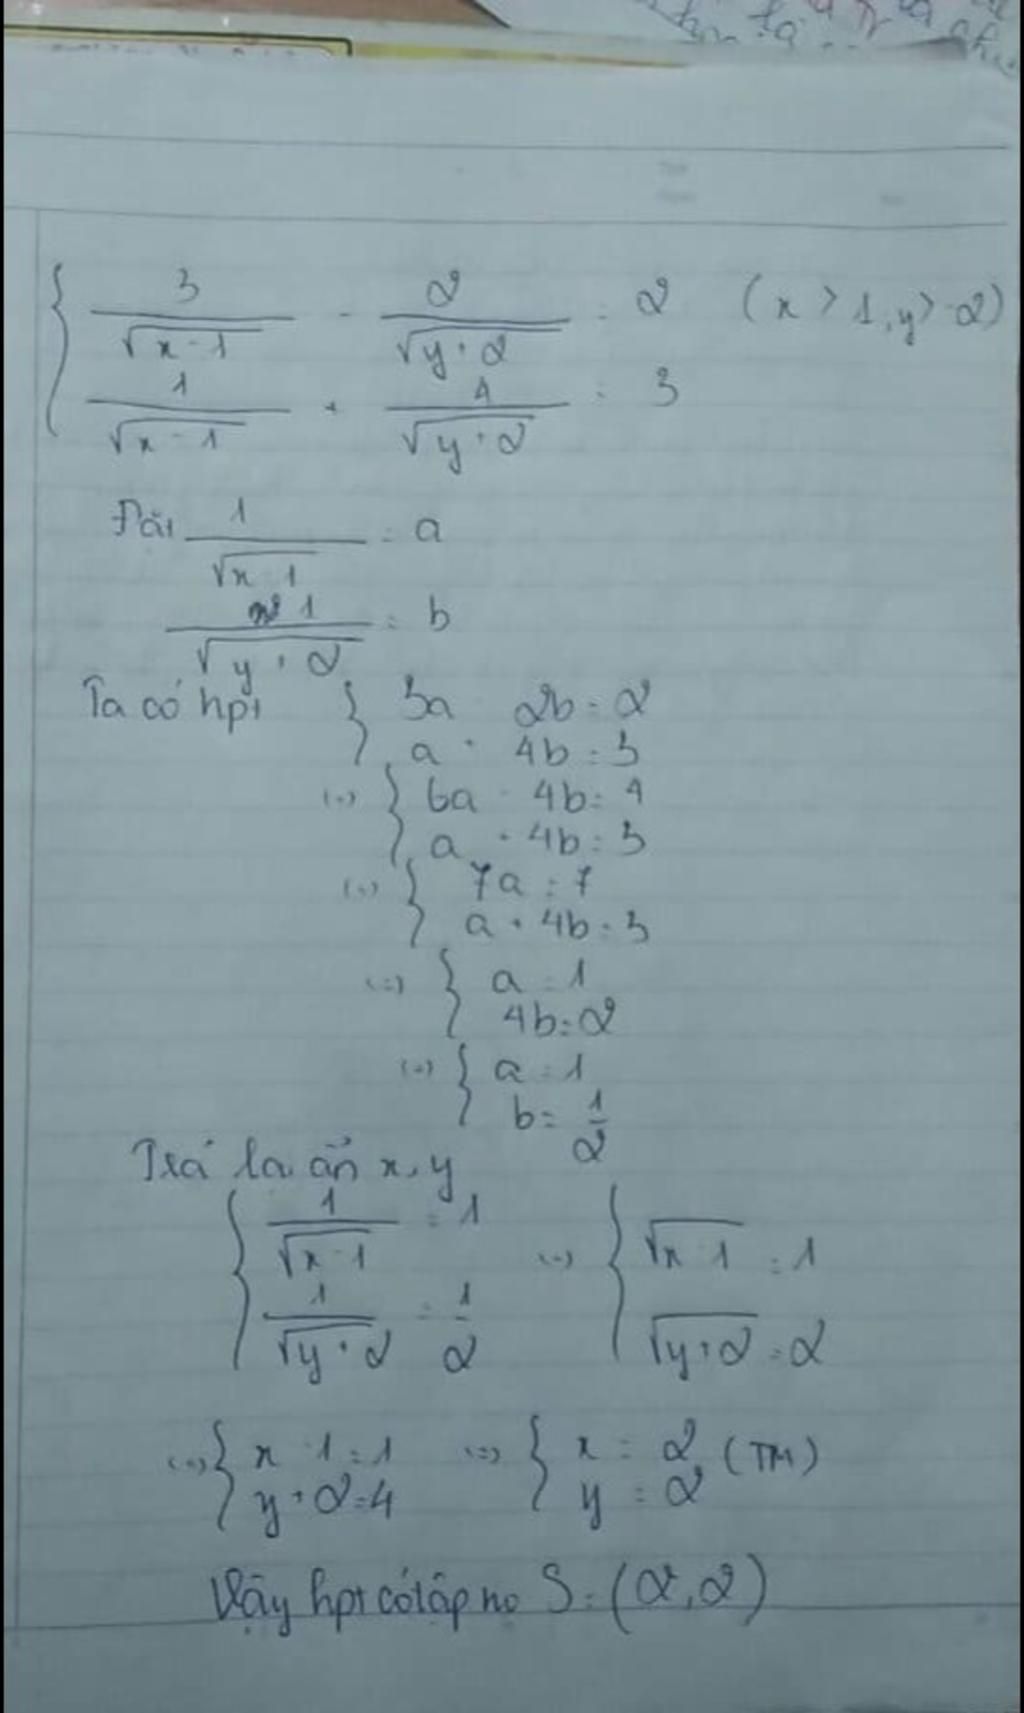 { 3/√(x-1) - 2/√(y+2) = 2 (x > 1, y > -2)
1/√(x-1) + 4/√(y+2) = 3
Đặt 1/√(x-1) = a
1/√(y+2) = b
Ta có hpt { 3a - 2b = 2
a + 4b = 3
(=) { 6a - 4b = 4
a + 4b = 3
(=) { 7a = 7
a + 4b = 3
(=) { a = 1
4b = 2
(=) { a = 1
b = 1/2
Trả lại ẩn x, y
{ 1/√(x-1) = 1 (=) { √(x-1) = 1
1/√(y+2) = 1/2 √(y+2) = 2
(=) { x - 1 = 1 (=) { x = 2 (TM)
y + 2 = 4 y = 2
Vậy hpt có tập no S = (2, 2)